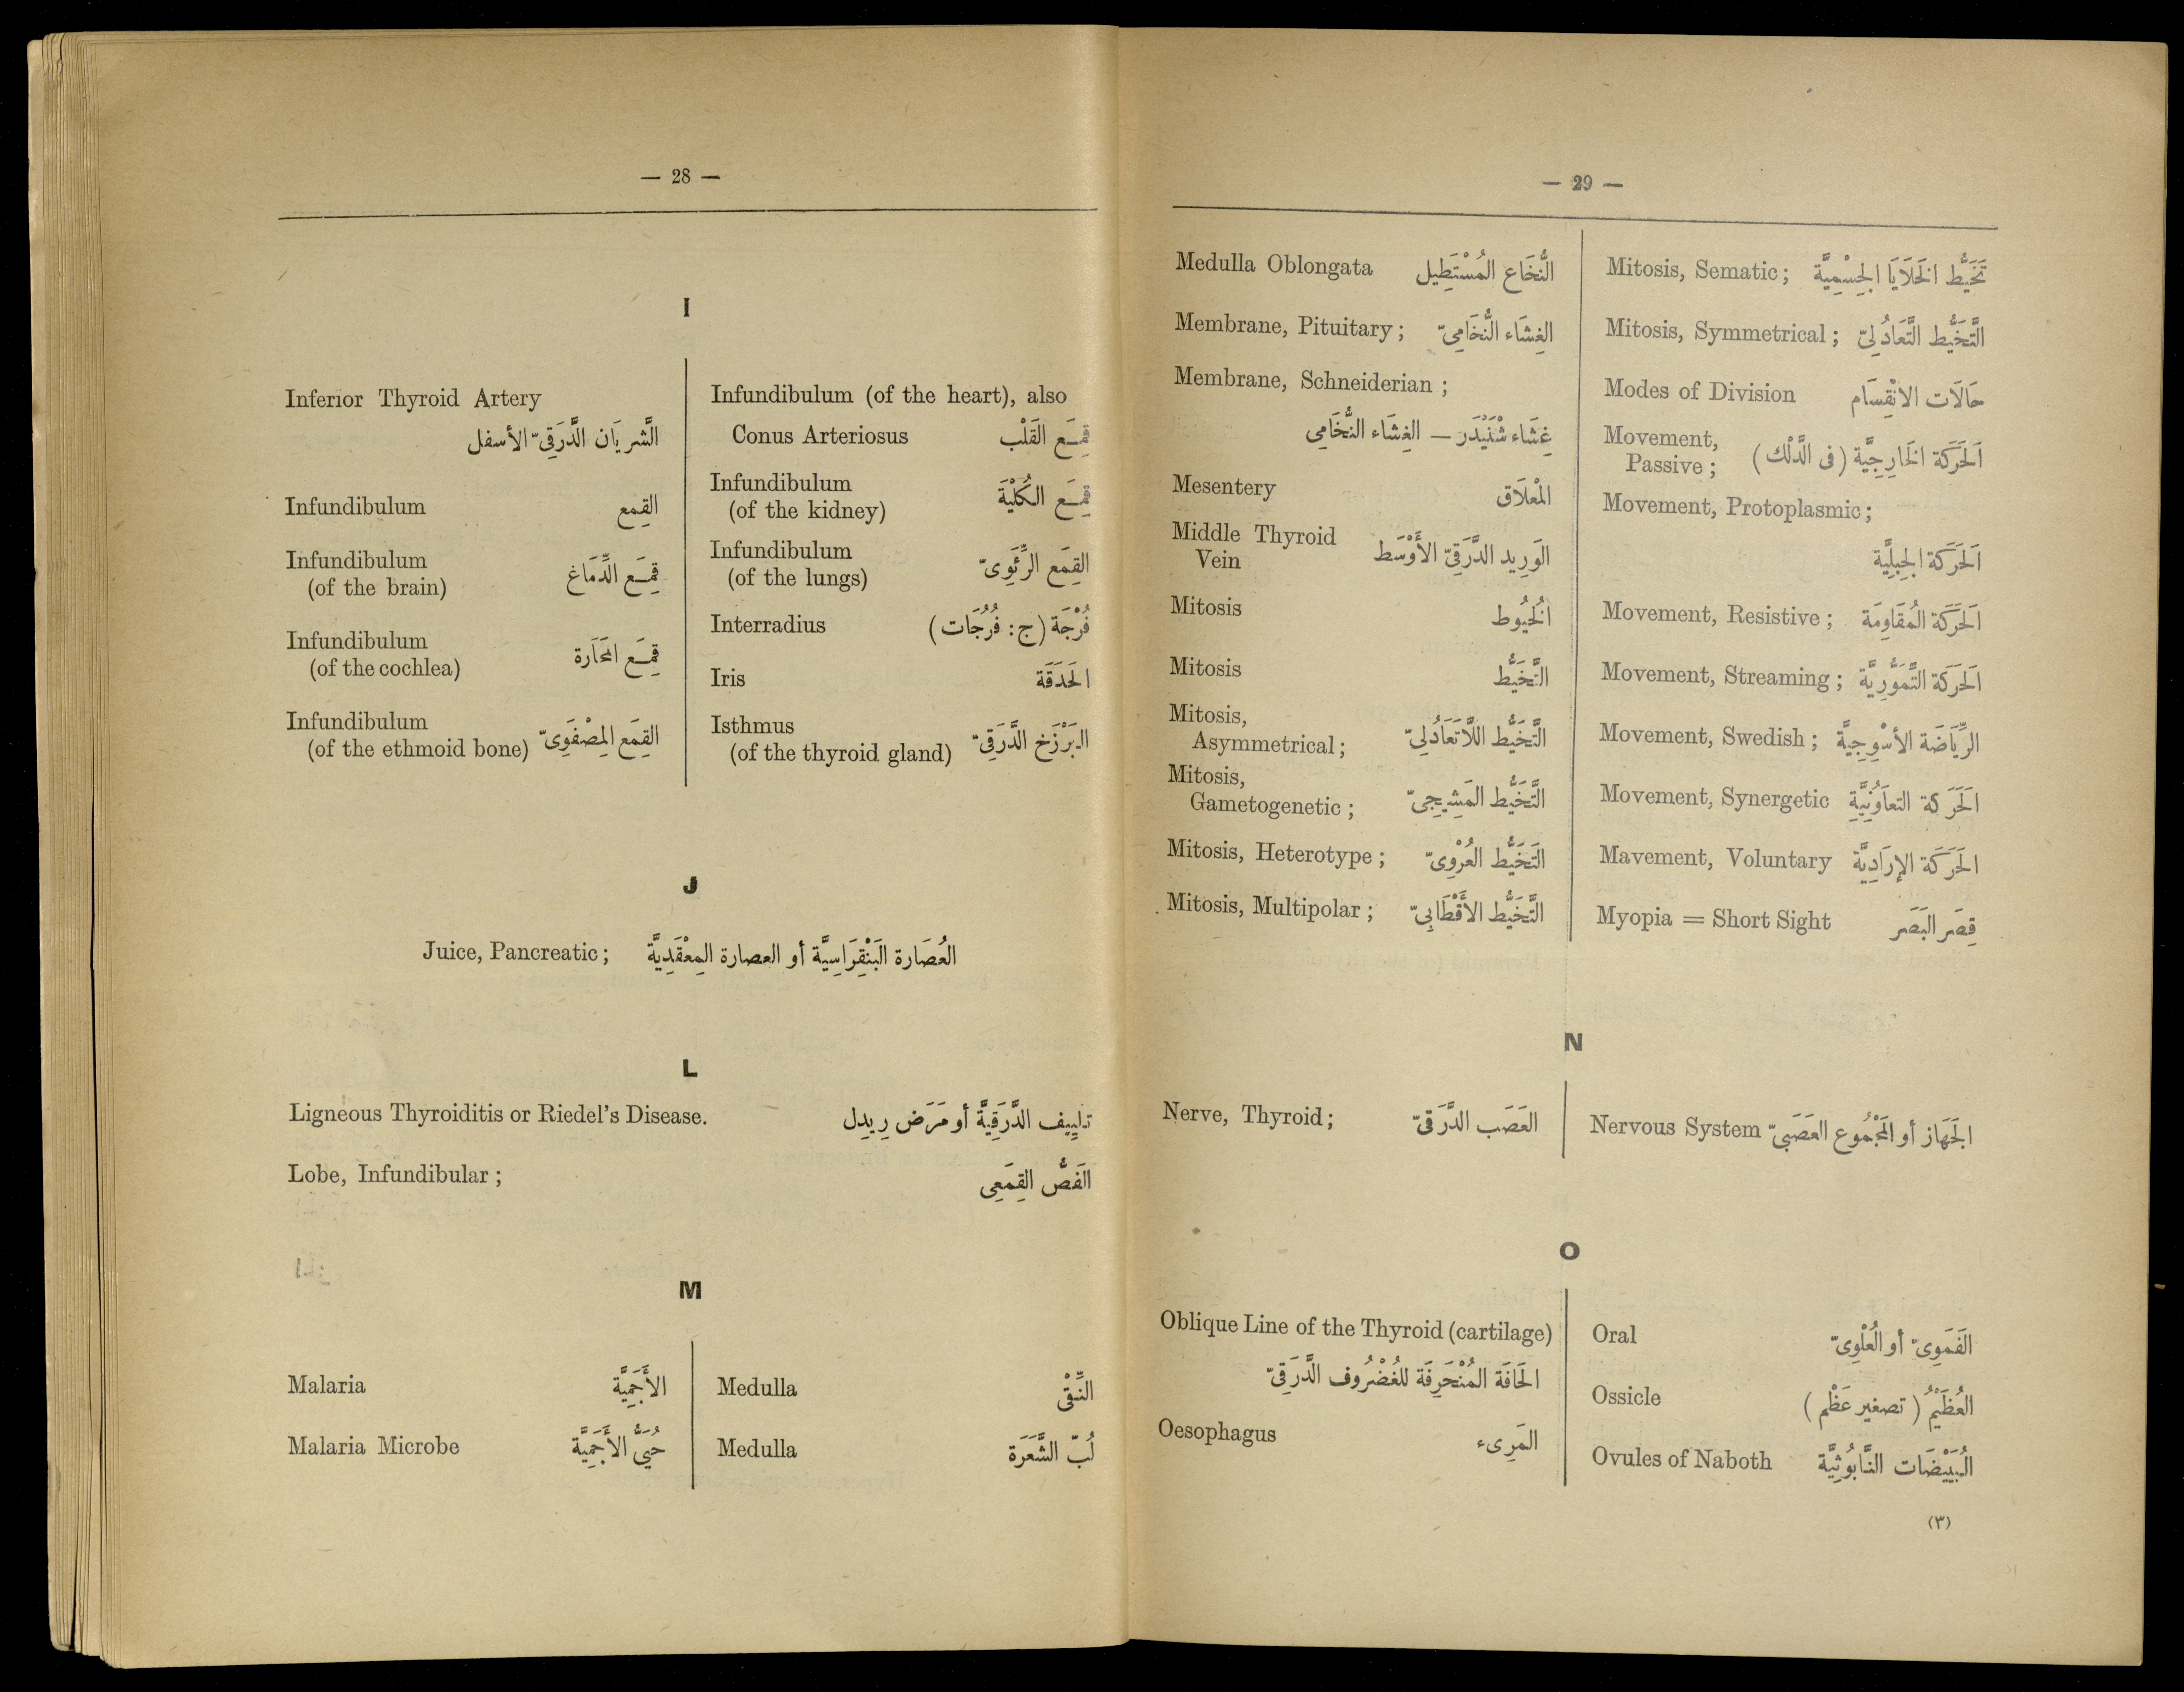 — 28 —
I
Inferior Thyroid Artery
الشَّريَان الدَّرَقِيّ الأسفل
Infundibulum القِمع
Infundibulum
(of the brain) قِمَع الدِّمَاغ
Infundibulum
(of the cochlea) قِمَع المَحَارَة
Infundibulum
(of the ethmoid bone) القِمَع المِصْفَوِىّ
Infundibulum (of the heart), also
Conus Arteriosus قِمَع القَلْب
Infundibulum
(of the kidney) قِمَع الكُلْيَة
Infundibulum
(of the lungs) القِمَع الرِّئَوِىّ
Interradius فُرْجَة (ج: فُرُجَات)
Iris الحَدَقَة
Isthmus
(of the thyroid gland) البَرْزَخ الدَّرَقِيّ
J
Juice, Pancreatic; العُصَارة البَنْقِرَاسِيَّة أو العصارة المِعْقَدِيَّة
L
Ligneous Thyroiditis or Riedel's Disease. تلييف الدَّرَقِيَّة أو مَرَض رِيدِل
Lobe, Infundibular; الفَصُّ القِمَعِى
M
Malaria الأَجَمِيَّة
Malaria Microbe حُيَىُّ الأَجَمِيَّة
Medulla النِّقْى
Medulla لُبّ الشَّعَرَة
— 29 —
Medulla Oblongata النُّخَاع المُسْتَطِيل
Membrane, Pituitary; الغِشَاء النُّخَامِىّ
Membrane, Schneiderian;
غِشَاء شْنَيْدَر — الغِشَاء النُّخَامِى
Mesentery المْعْلَاق
Middle Thyroid
Vein الوَرِيد الدَّرَقِىّ الأَوْسَط
Mitosis الخُيُوط
Mitosis التَّخَيُّط
Mitosis,
Asymmetrical; التَّخَيُّط اللَّاتَعَادُلِىّ
Mitosis,
Gametogenetic; التَّخَيُّط المَشِيجِىّ
Mitosis, Heterotype; التَخَيُّط العُرْوِىّ
Mitosis, Multipolar; التَّخَيُّط الأَقْطَابِىّ
Mitosis, Sematic; تَخَيُّط الخَلَايَا الجِسْمِيَّة
Mitosis, Symmetrical; التَّخَيُّط التَّعَادُلِىّ
Modes of Division حَالَات الانْقِسَام
Movement,
Passive; الحَرَكَة الخَارِجِيَّة (فى الدَّلْك)
Movement, Protoplasmic;
الحَرَكَة الجِبِلِيَّة
Movement, Resistive; الحَرَكَة المُقَاوِمَة
Movement, Streaming; الحَرَكَة التَّمَوُّرِيَّة
Movement, Swedish; الرِّيَاضَة الأسْوِجِيَّة
Movement, Synergetic الحَرَكة التعاَوُنِيَّة
Mavement, Voluntary الحَرَكَة الإرَادِيَّة
Myopia = Short Sight قِصَر البَصَر
N
Nerve, Thyroid; العَصَب الدَّرَقِىّ
Nervous System الجَهَاز أو المَجْمُوع العَصَبِىّ
O
Oblique Line of the Thyroid (cartilage)
الحَافَة المُنْحَرِفَة للغُضْرُوف الدَّرَقِىّ
Oesophagus المَرِىء
Oral الفَمَوِىّ أو العُلْوِىّ
Ossicle العُظَيْم (تصغير عَظْم)
Ovules of Naboth البُيَيْضَات النَّابُوثِيَّة
(٣)